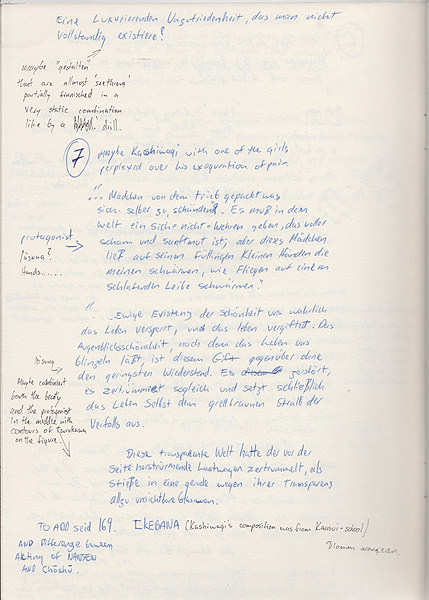 Eine Luxurierenden Unzufriedenheit, das man nicht
vollständig existiere?
maybe "gestalten"
that are allmost 'seethrew'
partially finnisched in a
very static combination
like by a doll.
7
maybe Kashiwagi with one of the girls
perplexed over his exaguration of pain
"... Mädchen von dem trieb gepackt was
sich selber zu schänden. Es muß in dem
welt ein sich-nicht-wehren geben, das voller
scham und sanftmut ist, aber dieses Mädchen
ließ auf seinen fülligen kleinen Händen die
meinen schwärmen, wie Fliegen auf einem
schlafenden Leibe schwärmen."
protagonist
lösung?
Hands.....
"... Ewige Existenz der schönheit uns wahrlich
das Leben versport, und das leben vergiftet. Das
Augenblicksschönheit, nach dem das Leben uns
blinzeln läßt, ist diesem Gift gegenüber ohne
den geringsten Wiederstand. Es zerstört,
es zertrümmert sogleich und setzt schließlich
das Leben selbst dem grellbraunen Strahl der
Verfalls aus.
lösung
Maybe combinent
both the beauty
and the protagonist
in the middle with
contours of
on the figure
Diese transparente Welt hatte der vor der
Seite herströmende Lastwagen zertrümmelt, als
Stieße in eine gerade wegen ihrer Transparenz
allzu unsichtbare Glaswan.
TO ADD seid 169. IKEBANA (Kashiwagi's composition was from Kansui-school)
Blomen arrangeren.
AND Differenze between
Akting of NANSEN
AND Chōshū.